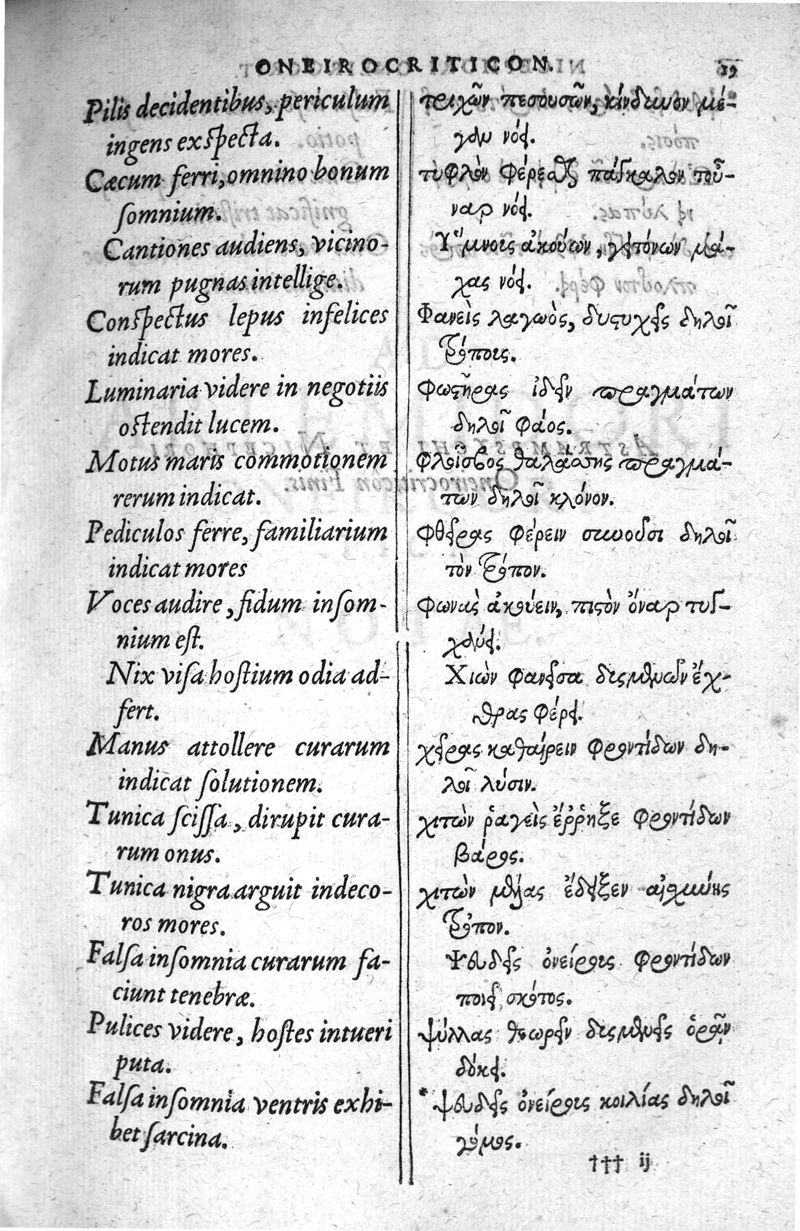 ONEIROCRITICON.
19
Pilis decidentibus, periculum
ingens exſpecta.
Cæcum ferri, omnino bonum
ſomnium.
Cantiones audiens, vicino-
rum pugnas intellige.
Conſpectus lepus infelices
indicat mores.
Luminaria videre in negotiis
oſtendit lucem.
Motus maris commotionem
rerum indicat.
Pediculos ferre, familiarium
indicat mores
Voces audire, fidum inſom-
nium eſt.
Nix viſa hoſtium odia ad-
fert.
Manus attollere curarum
indicat ſolutionem.
Tunica ſciſſa, dirupit cura-
rum onus.
Tunica nigra arguit indeco-
ros mores.
Falſa inſomnia curarum fa-
ciunt tenebræ.
Pulices videre, hoſtes intueri
puta.
Falſa inſomnia ventris exhi-
bet ſarcina.
τριχῶν πεσουσῶν, κίνδυνον μέ-
γαν νόει.
τυφλὸν φέρεσθαι πάγκαλον τοὔ-
ναρ νόει.
Ὕμνοις ἀκούων, γειτόνων μά-
χας νόει.
Φανεὶς λαγωὸς, δυστυχεῖς δηλοῖ
τρόποις.
Φωστῆρας ἰδεῖν πραγμάτων
δηλοῖ φάος.
Φλοῖσβος θαλάσσης πραγμά-
των δηλοῖ κλόνον.
Φθεῖρας φέρειν συνοῦσι δηλοῖ
τὸν τρόπον.
Φωνὰς ἀκούειν, πιστὸν ὄναρ τυγ-
χάνει.
Χιὼν φανεῖσα δυσμενῶν ἔχ-
θρας φέρει.
χεῖρας καθαίρειν φροντίδων δη-
λοῖ λύσιν.
χιτὼν ῥαγεὶς ἔῤῥηξε φροντίδων
βάρος.
χιτὼν μέλας ἔδειξεν αἰσχύνης
τρόπον.
Ψευδεῖς ὀνείρους φροντίδων
ποιεῖ σκότος.
ψύλλας θεωρεῖν δυσμενεῖς ὁρᾷν
δόκει.
* ψευδεῖς ὀνείρους κοιλίας δηλοῖ
γόμος.
††† ij